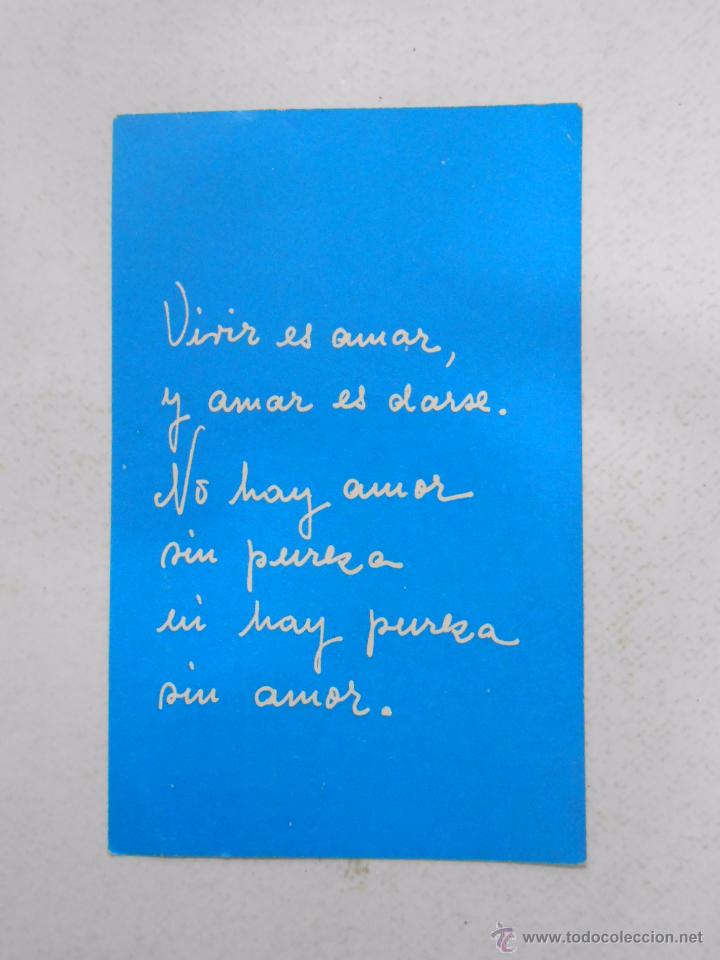 Vivir es amar,
y amar es darse.
No hay amor
sin pureza
ni hay pureza
sin amor.
© www.todocoleccion.net